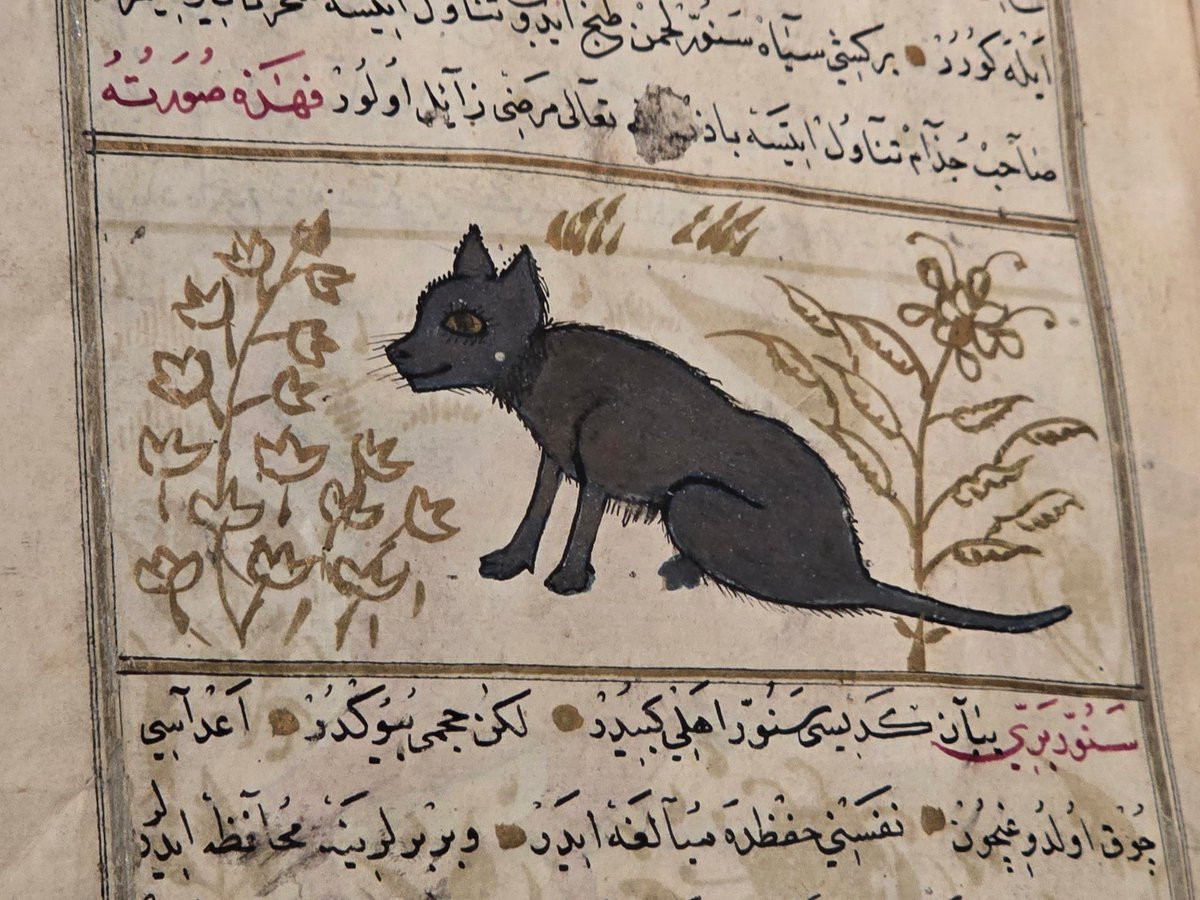 ايله كورر بر كشي سياه سنور لحمن طبخ ايدوب تناول ايلسه
صاحب جذام تناول ايلسه باذن تعالى مرضى زآئل اولور فهذه صورته
سنور بري يبان كديسى سنور اهلي كبيدر لكن حجمى بيوكدر اعداسي
چوق اولدوغيچون نفسني حفظده مبالغه ايدر وبربرلرينه محافظه ايدرلر